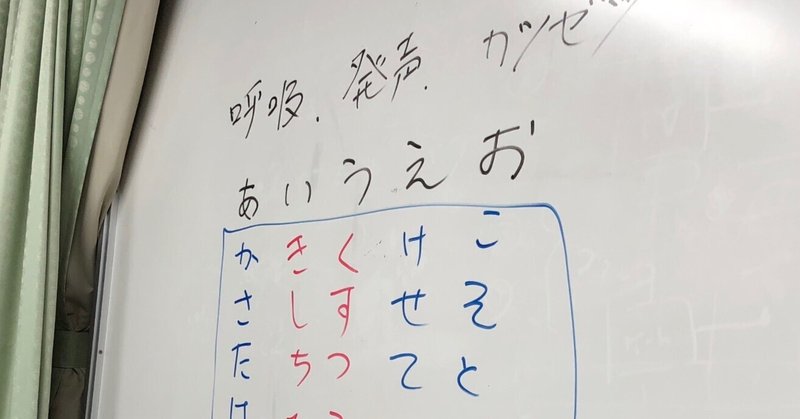 呼吸、発声、カツゼツ
あいうえお
かきくけこ
さしすせそ
たちつてと
は